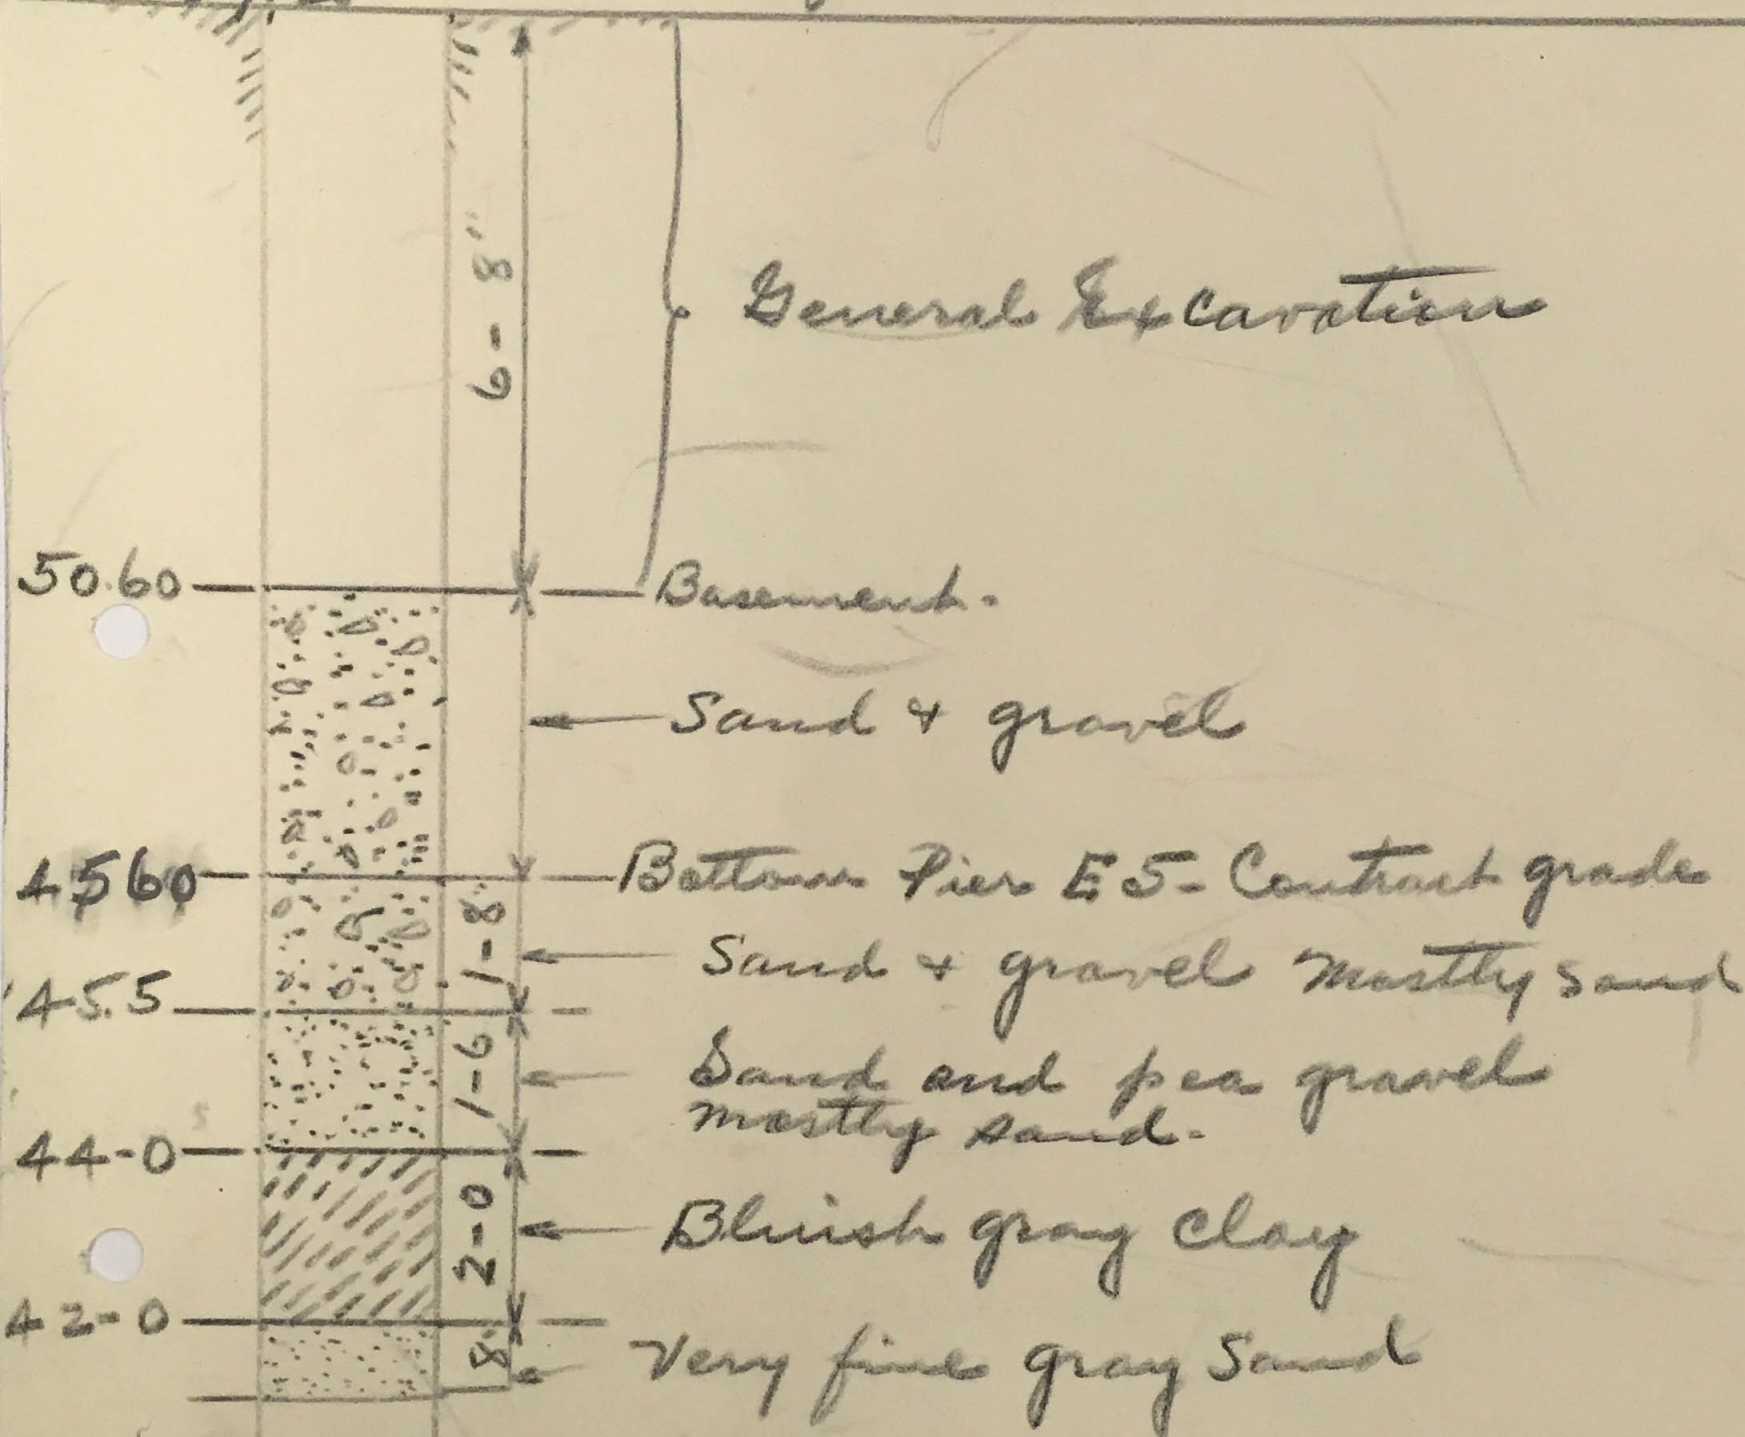 6-8"
General Excavation
50.60 Basement.
Sand & gravel
4560 Bottom Pier E5- Contract grade
1-8"
Sand & gravel Mostly Sand
45.5
1-6
Sand and pea gravel
mostly sand.
44-0
2-0
Bluish gray clay
42-0
8" Very fine gray Sand